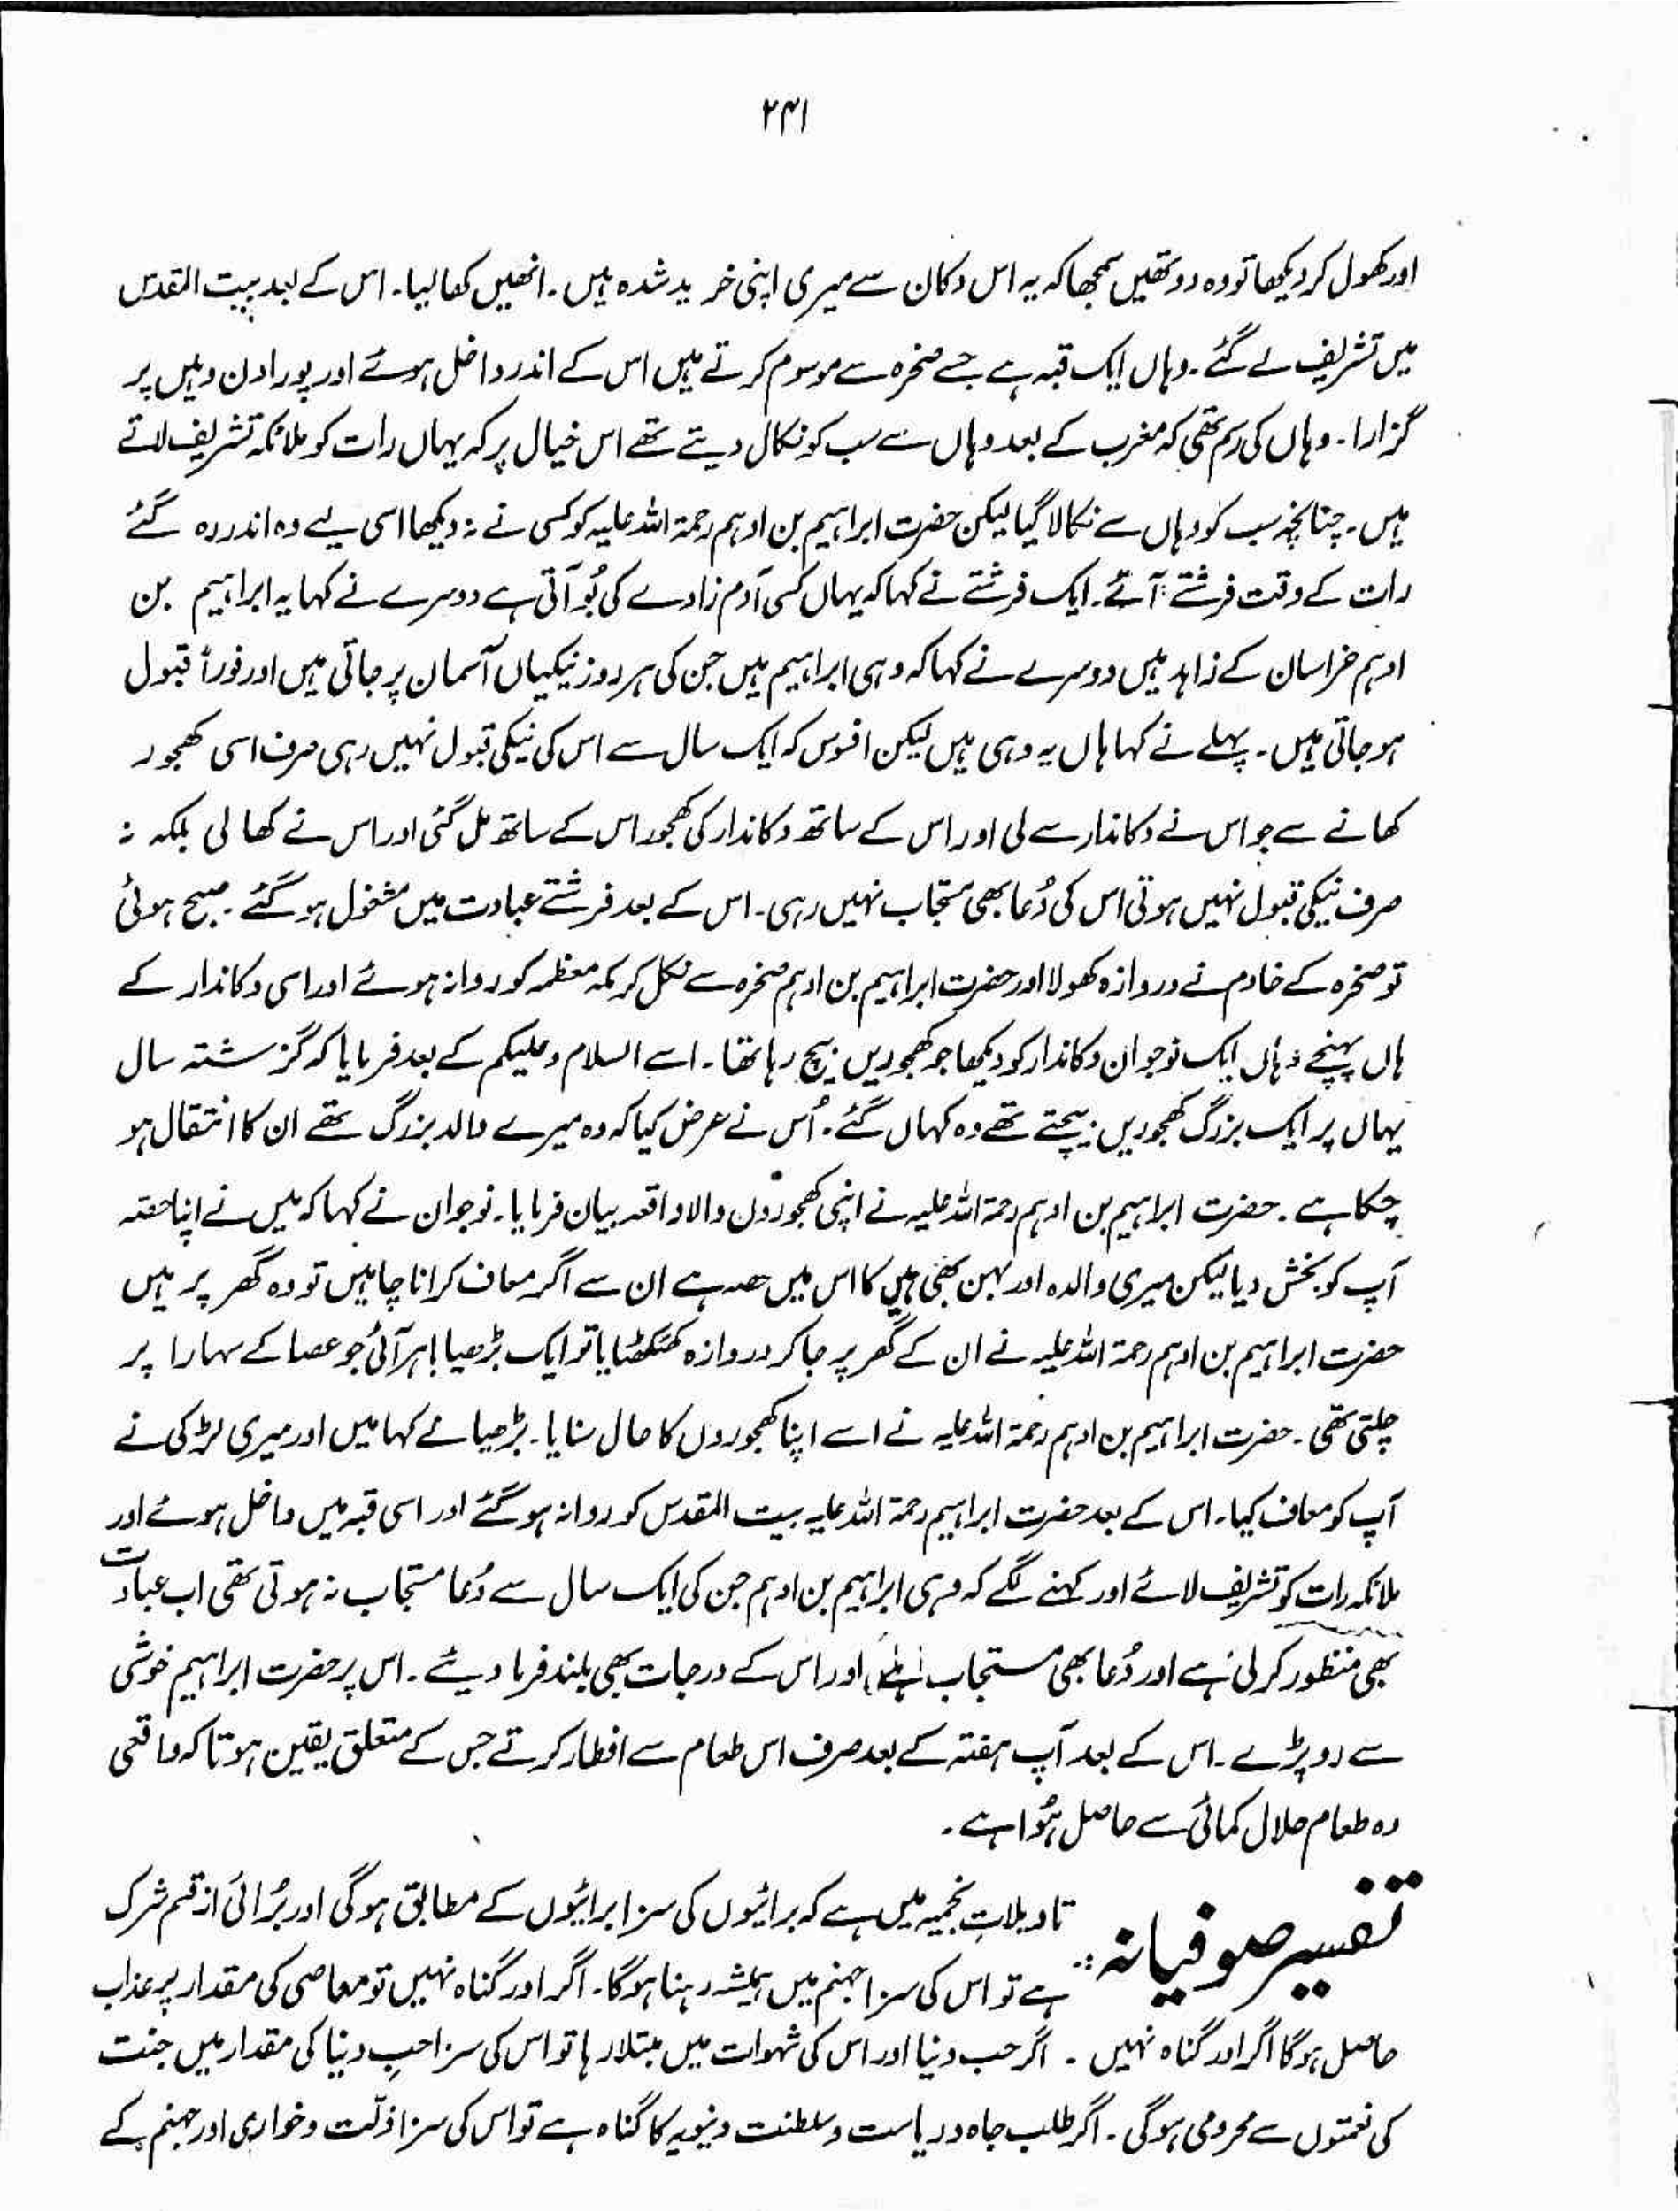 ۲۴۱
اور کھول کر دیکھا تو وہ دو تھیں سمجھا کہ یہ اس دکان سے میری اپنی خرید شدہ ہیں۔ انھیں کھا لیا۔ اس کے بعد بیت المقدس
میں تشریف لے گئے۔ وہاں ایک قبہ ہے جسے صخرہ سے موسوم کرتے ہیں اس کے اندر داخل ہوئے اور پورا دن وہیں پر
گزارا۔ وہاں کی رسم تھی کہ مغرب کے بعد وہاں سے سب کو نکال دیتے تھے اس خیال پر کہ یہاں رات کو ملائکہ تشریف لاتے
ہیں۔ چنانچہ سب کو وہاں سے نکالا گیا لیکن حضرت ابراہیم بن ادہم رحمۃ اللہ علیہ کو کسی نے نہ دیکھا اسی لیے وہ اندر رہ گئے
رات کے وقت فرشتے آئے۔ ایک فرشتے نے کہا کہ یہاں کسی آدم زادے کی بُو آتی ہے دوسرے نے کہا یہ ابراہیم بن
ادہم خراسان کے زاہد ہیں دوسرے نے کہا کہ وہی ابراہیم ہیں جن کی ہر روز نیکیاں آسمان پر جاتی ہیں اور فوراً قبول
ہو جاتی ہیں۔ پہلے نے کہا ہاں یہ وہی ہیں لیکن افسوس کہ ایک سال سے اس کی نیکی قبول نہیں رہی صرف اسی کھجور
کھانے سے جو اس نے دکاندار سے لی اور اس کے ساتھ دکاندار کی کھجور اس کے ساتھ مل گئی اور اس نے کھا لی بلکہ نہ
صرف نیکی قبول نہیں ہوتی اس کی دُعا بھی مستجاب نہیں رہی۔ اس کے بعد فرشتے عبادت میں مشغول ہو گئے۔ صبح ہوئی
تو صخرہ کے خادم نے دروازہ کھولا اور حضرت ابراہیم بن ادہم صخرہ سے نکل کر مکہ معظمہ کو روانہ ہوئے اور اسی دکاندار کے
ہاں پہنچے وہاں ایک نوجوان دکاندار کو دیکھا جو کھجوریں بیچ رہا تھا۔ اسے السلام وعلیکم کے بعد فرمایا کہ گزشتہ سال
یہاں پر ایک بزرگ کھجوریں بیچتے تھے وہ کہاں گئے۔ اُس نے عرض کیا کہ وہ میرے والد بزرگ تھے ان کا انتقال ہو
چکا ہے۔ حضرت ابراہیم بن ادہم رحمۃ اللہ علیہ نے اپنی کھجوروں والا واقعہ بیان فرمایا۔ نوجوان نے کہا کہ میں نے اپنا حصّہ
آپ کو بخش دیا لیکن میری والدہ اور بہن بھی ہیں کا اس میں حصہ ہے ان سے اگر معاف کرانا چاہیں تو وہ گھر پر ہیں
حضرت ابراہیم بن ادہم رحمۃ اللہ علیہ نے ان کے گھر پر جا کر دروازہ کھٹکھٹایا تو ایک بڑھیا باہر آئی جو عصا کے سہارا پر
چلتی تھی۔ حضرت ابراہیم بن ادہم رحمۃ اللہ علیہ نے اسے اپنا کھجوروں کا حال سنایا۔ بڑھیا نے کہا میں اور میری لڑکی نے
آپ کو معاف کیا۔ اس کے بعد حضرت ابراہیم رحمۃ اللہ علیہ بیت المقدس کو روانہ ہو گئے اور اسی قبہ میں داخل ہوئے اور
ملائکہ رات کو تشریف لائے اور کہنے لگے کہ وہی ابراہیم بن ادہم جن کی ایک سال سے دُعا مستجاب نہ ہوتی تھی اب عبادت
بھی منظور کر لی ہے اور دُعا بھی مستجاب اور اس کے درجات بھی بلند فرما دیئے۔ اس پر حضرت ابراہیم خوشی
سے رو پڑے۔ اس کے بعد آپ ہفتہ کے بعد صرف اس طعام سے افطار کرتے جس کے متعلق یقین ہوتا کہ واقعی
وہ طعام حلال کمائی سے حاصل ہُوا ہے۔
تفسیر صوفیانہ: تاویلاتِ نجمیہ میں ہے کہ برائیوں کی سزا برائیوں کے مطابق ہوگی اور بُرائی از قسم شرک
ہے تو اس کی سزا جہنم میں ہمیشہ رہنا ہوگا۔ اگر اور گناہ نہیں تو معاصی کی مقدار پر عذاب
حاصل ہوگا اگر اور گناہ نہیں ۔ اگر حب دنیا اور اس کی شہوات میں مبتلا رہا تو اس کی سزا حبِ دنیا کی مقدار میں جنت
کی نعمتوں سے محرومی ہوگی۔ اگر طلب جاہ و ریاست و سلطنت دنیویہ کا گناہ ہے تو اس کی سزا ذلّت و خواری اور جہنم کے